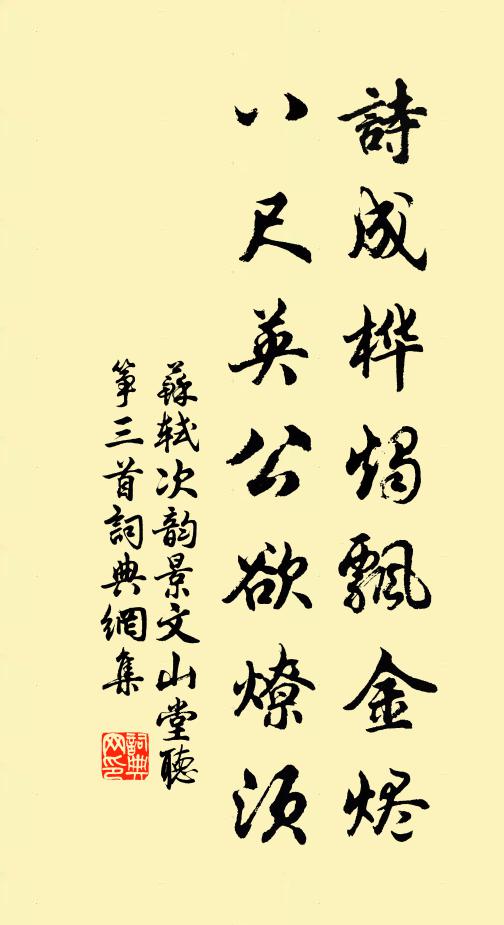 詩成桦燭飄金烬
八尺英公欲燎须
蘇軾次韵景文山堂聽
箏三首詞典網集
詞典網印